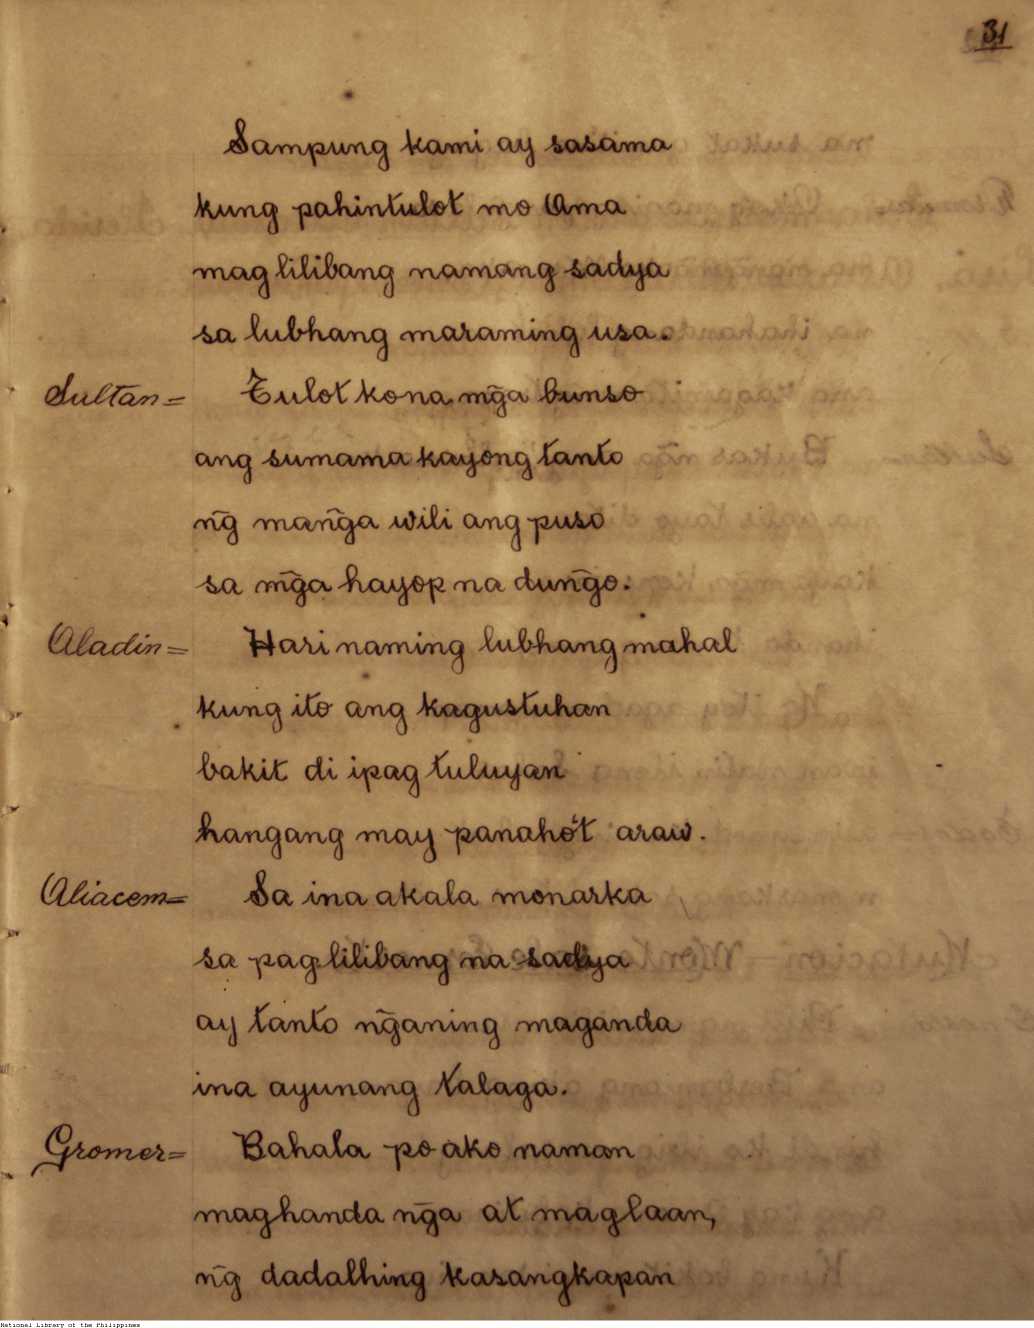 31
Sampung kami ay sasama
kung pahintulot mo Ama
mag lilibang namang sadya
sa lubhang maraming usa.
Sultan= Tulot ko na mg̃a bunso
ang sumama kayong tanto
ng̃ mang̃a wili ang puso
sa mg̃a hayop na dung̃o.
Aladin= Hari naming lubhang mahal
kung ito ang kagustuhan
bakit di ipag tuluyan
hangang may panaho't araw.
Aliacem= Sa ina akala monarka
sa pag lilibang na sadya
ay tanto ng̃aning maganda
ina ayunang talaga.
Gromer= Bahala po ako naman
maghanda ng̃a at maglaan,
ng̃ dadalhing kasangkapan
National Library of the Philippines